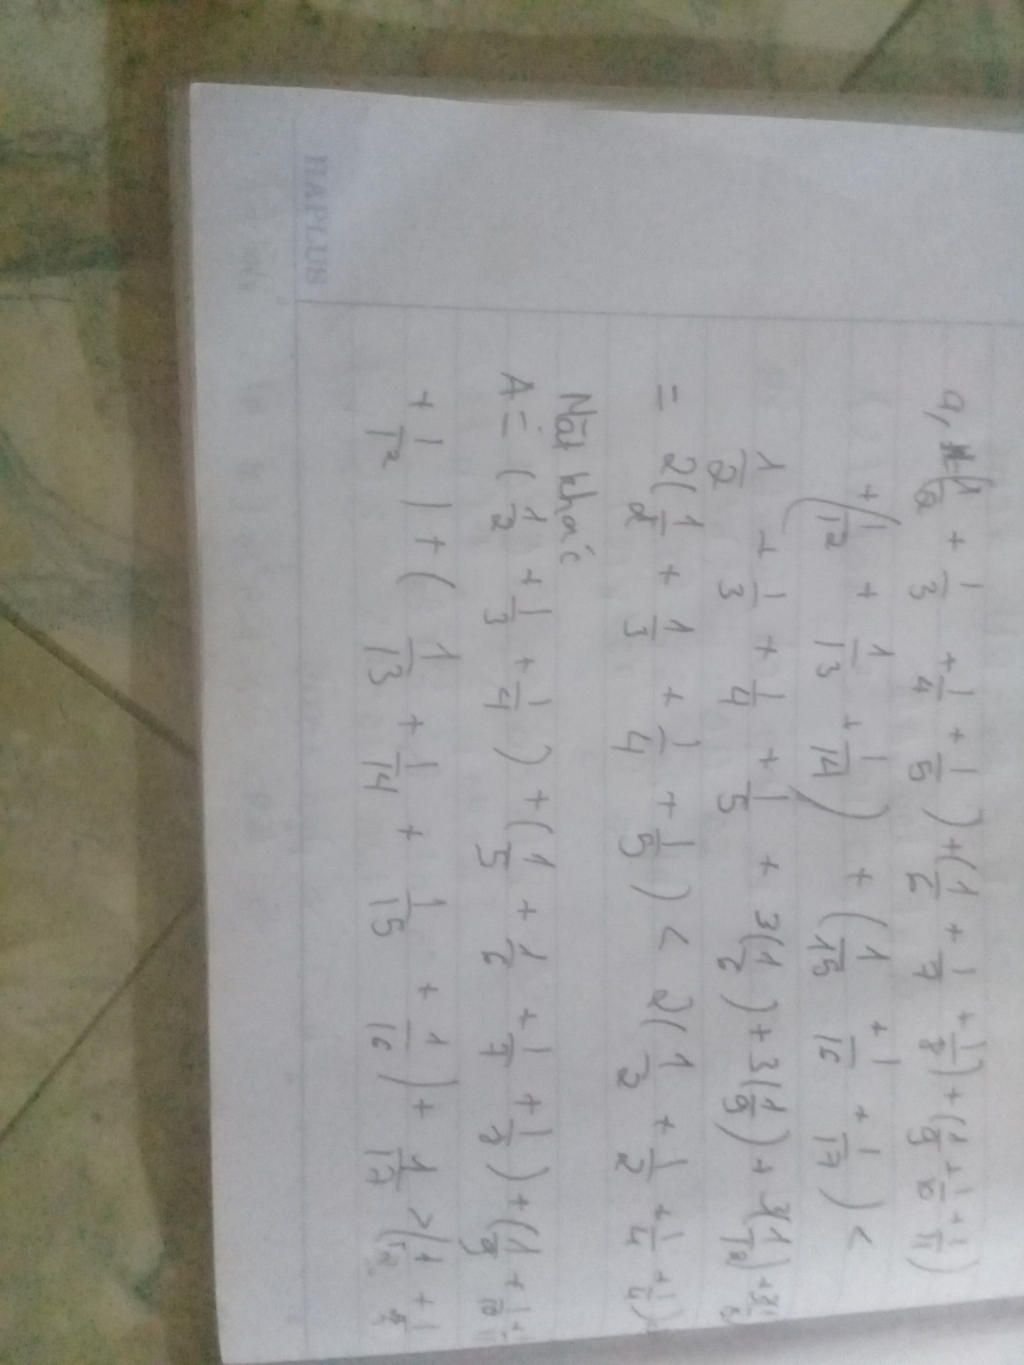 HAPLUS
a, (1/2 + 1/3 + 1/4 + 1/5) + (1/6 + 1/7 + 1/8) + (1/9 + 1/10 + 1/11)
+ (1/12 + 1/13 + 1/14) + (1/15 + 1/16 + 1/17) <
1/2 + 1/3 + 1/4 + 1/5 + 3(1/6) + 3(1/9) + 3(1/12) +
= 2(1/2 + 1/3 + 1/4 + 1/5) < 2(1/2 + 1/2 + 1/4 + 1/4)
Mặt khác
A = (1/2 + 1/3 + 1/4) + (1/5 + 1/6 + 1/7 + 1/8) + (1/9 + 1/10 + 1/11
+ 1/12) + (1/13 + 1/14 + 1/15 + 1/16) + 1/17 > (